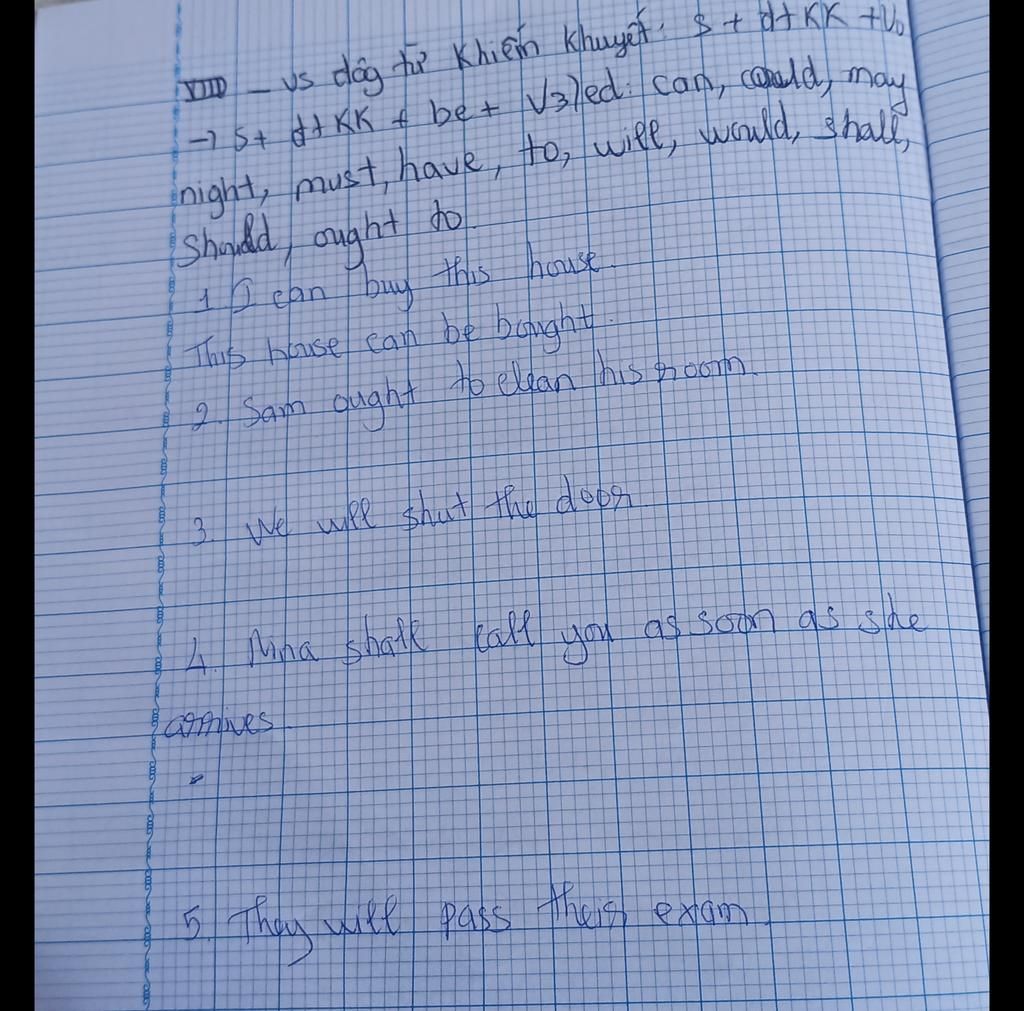 VIII - vs độg từ Khiếm Khuyết: S + đt KK + V0
→ S + đt KK + be + V3/ed: can, could, may
night, must, have, to, will, would, shall,
Should, ought to
1. I can buy this house.
This house can be bought.
2. Sam ought to clean his room.
3. We will shut the door
4. Nina shall call you as soon as she
arrives
5. They will pass their exam